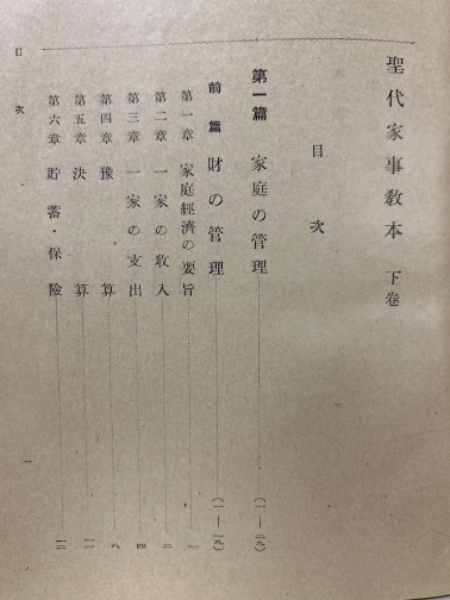 聖代家事教本 下卷
目次
第一篇 家庭の管理 (一—二九)
前篇 財の管理 (一—一九)
第一章 家庭經濟の要旨 一
第二章 一家の收入 二
第三章 一家の支出 四
第四章 豫算 八
第五章 決算 一一
第六章 貯蓄・保險 一三
目次 一